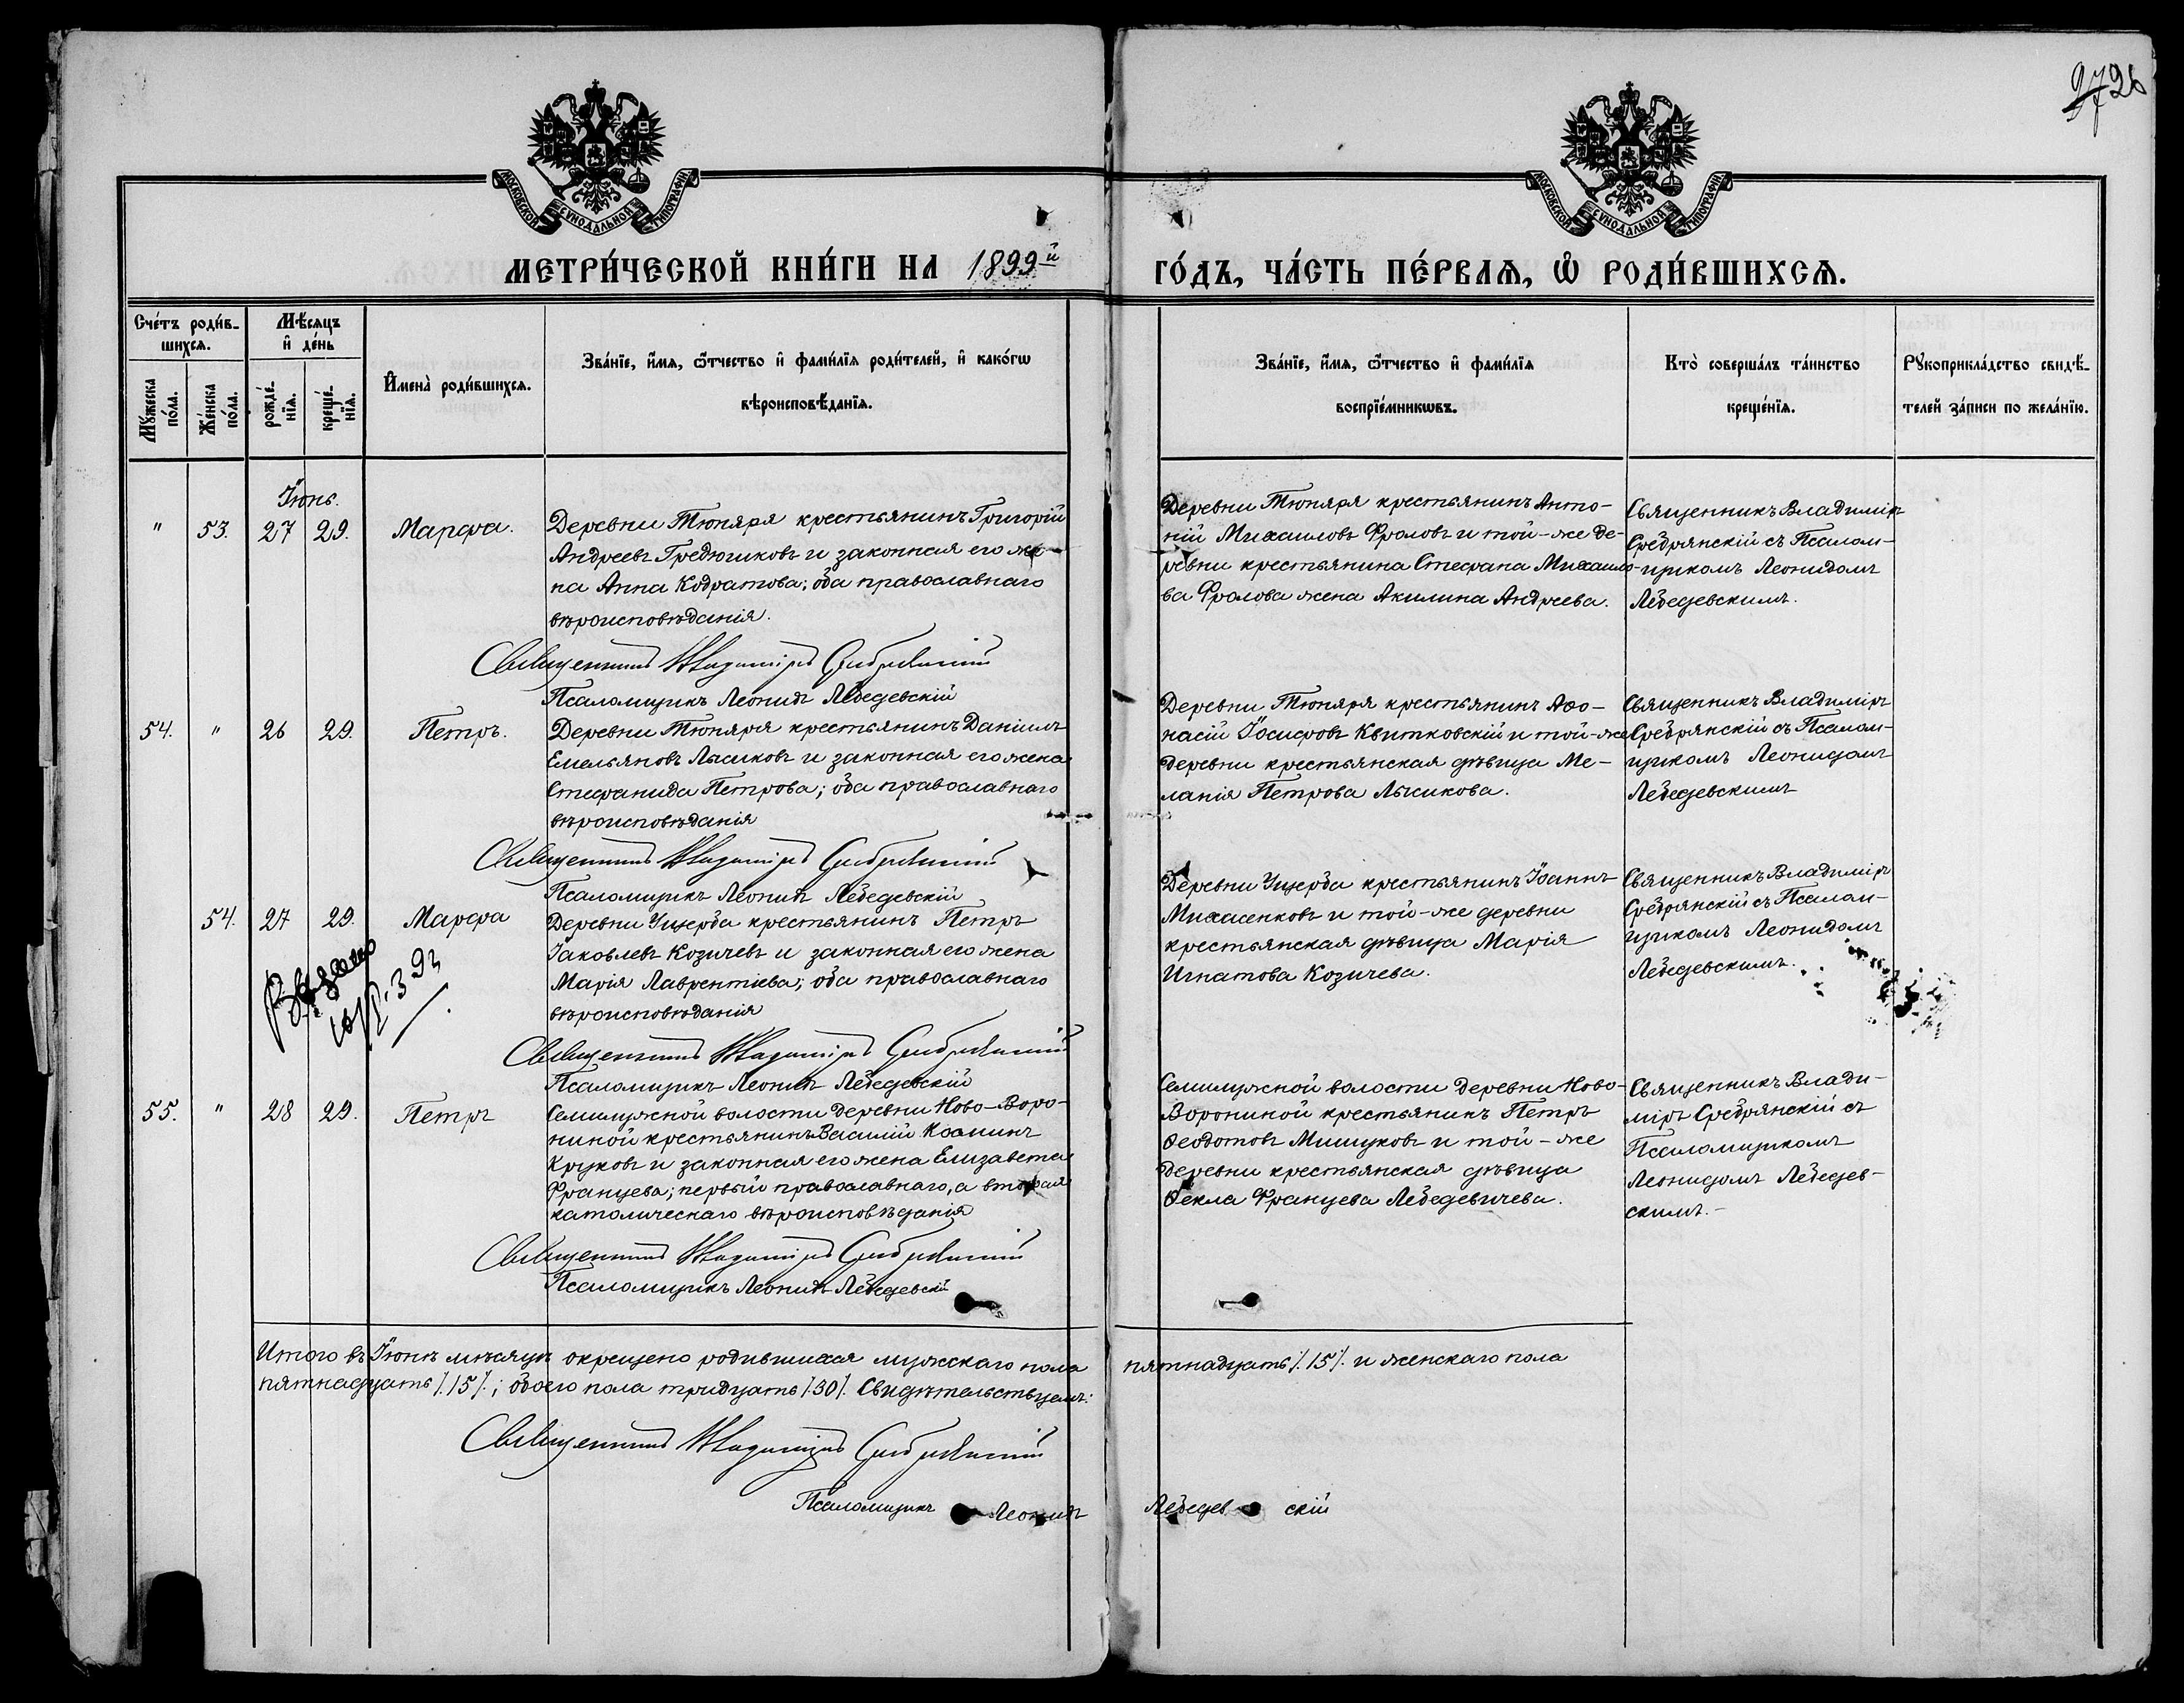 9726
МОСКОВСКОЙ СУНОДАЛЬНОЙ ТИПОГРАФІИ
МОСКОВСКОЙ СУНОДАЛЬНОЙ ТИПОГРАФІИ
МЕТРИ́ЧЕСКОЙ КНИ́ГИ НА 1899й ГО́ДЪ, ЧА́СТЬ ПЕ́РВАѦ, Ѽ РОДИ́ВШИХСѦ.
Сче́тъ роди́в-
шихсѧ.
Мꙋ́жеска
по́ла.
Же́нска
по́ла.
Мѣ́сѧцъ
и҆ де́нь
рожде́-
нїѧ.
креще́-
нїѧ.
И҆мена̀ роди́вшихсѧ.
Зва́нїе, и҆́мѧ, ѻ҆́тчество и҆ фами́лїѧ роди́телей, и҆ како́гѡ
вѣроисповѣ́данїѧ.
Зва́нїе, и҆́мѧ, ѻ҆́тчество и҆ фами́лїѧ
воспрїе́мникѡвъ.
Кто̀ соверша́лъ та́инство
креще́нїѧ.
Рꙋкоприкла́дство свидѣ́-
телей за́писи по жела́нїю.
Іюнь.
" 53. 27 29. Марфа.
Деревни Тюняря крестьянинъ Григорій
Андреевъ Гредюшковъ и законная его же-
на Анна Кодратова; оба православнаго
вѣроисповѣданія.
Священникъ Владиміръ Сребрянскій
Псаломщикъ Леонидъ Лебедевскій
Деревни Тюняря крестьянинъ Анто-
ній Михаиловъ Фроловъ и той-же де-
ревни крестьянина Стефана Михаило-
ва Фролова жена Акилина Андреева.
Священникъ Владиміръ
Сребрянскій съ Псалом-
щикомъ Леонидомъ
Лебедевскимъ.
54. " 26 29. Петръ.
Деревни Тюняря крестьянинъ Даніилъ
Емельяновъ Лысиковъ и законная его жена
Стефанида Петрова; оба православнаго
вѣроисповѣданія
Священникъ Владиміръ Сребрянскій
Псаломщикъ Леонидъ Лебедевскій
Деревни Тюняря крестьянинъ Афо-
насій Іосифовъ Квитковскій и той-же
деревни крестьянская дѣвица Ме-
ланія Петрова Лысикова.
Священникъ Владиміръ
Сребрянскій съ Псалом-
щикомъ Леонидомъ
Лебедевскимъ
54. 27 29. Марфа
Деревни Ущерба крестьянинъ Петръ
Іаковлевъ Козичевъ и законная его жена
Марія Лаврентіева; оба православнаго
вѣроисповѣданія
Священникъ Владиміръ Сребрянскій
Псаломщикъ Леонидъ Лебедевскій
Деревни Ущерба крестьянинъ Іоаннъ
Михасенковъ и той-же деревни
крестьянская дѣвица Марія
Игнатова Козичева.
Священникъ Владиміръ
Сребрянскій съ Псалом-
щикомъ Леонидомъ
Лебедевскимъ.
55. " 28 29. Петръ
Семилужной волости деревни Ново-Воро-
ниной крестьянинъ Василій Косминъ
Круковъ и законная его жена Елизавета
Францева; первый православнаго, а вторая
католическаго вѣроисповѣданія
Священникъ Владиміръ Сребрянскій
Псаломщикъ Леонидъ Лебедевскій
Семилужной волости деревни Ново-
Ворониной крестьянинъ Петръ
Ѳеодотовъ Мишуковъ и той-же
деревни крестьянская дѣвица
Ѳекла Францева Лебедевичева.
Священникъ Влади-
міръ Сребрянскій съ
Псаломщикомъ
Леонидомъ Лебедев-
скимъ.-
Итого въ Іюнѣ мѣсяцѣ окрещено родившихся мужскаго пола пятнадцать /.15/. и женскаго пола
пятнадцать /.15/.; обоего пола тридцать /.30/. Свидѣтельствуемъ:
Священникъ Владиміръ Сребрянскій
Псаломщикъ Леонидъ Лебедевскій